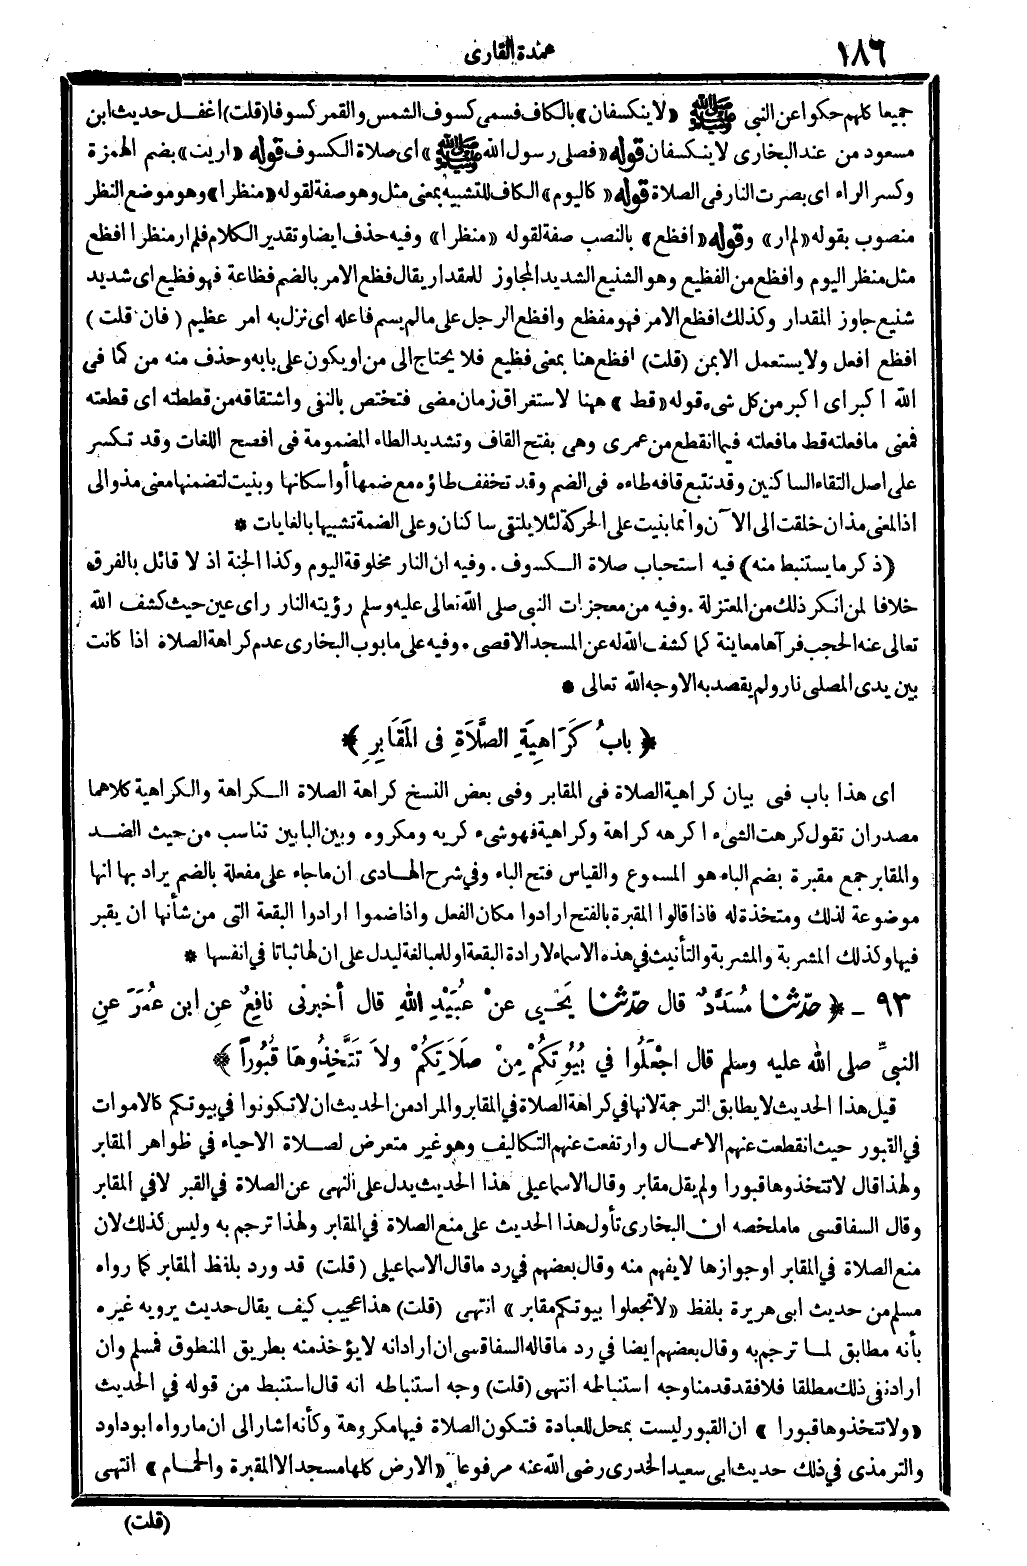 ١٨٦
عمدة القارى
جميعا كلهم حكوا عن النبى ﷺ «لا ينكسفان» بالكاف فسمى كسوف الشمس والقمر كسوفا (قلت) اغفــل حديث ابن
مسعود من عند البخارى لا ينكسفان قوله «فصلى رسول الله ﷺ» اى صلاة الكسوف قوله «اريت» بضم الهمزة
وكسر الراء اى بصرت النار فى الصلاة قوله «كاليوم» الكاف للتشبيه بمعنى مثل وهو صفة لقوله «منظرا» وهو موضع النظر
منصوب بقوله «لم ار» وقوله «افظع» بالنصب صفة لقوله «منظرا» وفيه حذف ايضا وتقدير الكلام فلم ار منظرا افظع
مثل منظر اليوم وافظع من الفظيع وهو الشنيع الشديد المجاوز للمقدار يقال فظع الامر بالضم فظاعة فهو فظيع اى شديد
شنيع جاوز المقدار وكذلك افظع الامر فهو مفظع وافظع الرجل على مالم يسم فاعله اى نزل به امر عظيم (فان قلت)
افظع افعل ولا يستعمل الا بمن (قلت) افظع هنا بمعنى فظيع فلا يحتاج الى من او يكون على بابه وحذف منه من كما فى
الله اكبر اى اكبر من كل شىء قوله «قط» ههنا لاستغراق زمان مضى فتختص بالنفى واشتقاقه من قططته اى قطعته
فمعنى ما فعلته قط ما فعلته فيما انقطع من عمرى وهى بفتح القاف وتشديد الطاء المضمومة فى افصح اللغات وقد تكسر
على اصل التقاء الساكنين وقد تتبع قافه طاءه فى الضم وقد تخفف طاؤه مع ضمها أو اسكانها وبنيت لتضمنها معنى مذ والى
اذ المعنى مذ ان خلقت الى الآن وانما بنيت على الحركة لئلا يلتقى ساكنان وعلى الضمة تشبيها بالغايات *
(ذكر ما يستنبط منه) فيه استحباب صلاة الــكسوف. وفيه ان النار مخلوقة اليوم وكذا الجنة اذ لا قائل بالفرق
خلافا لمن انكر ذلك من المعتزلة. وفيه من معجزات النبى صلى الله تعالى عليه وسلم رؤيته النار راى عين حيث كشف الله
تعالى عنه الحجب فرآها معاينة كما كشف الله له عن المسجد الاقصى. وفيه على ما بوب البخارى عدم كراهة الصلاة اذا كانت
بين يدى المصلى نار ولم يقصد به الا وجه الله تعالى *
﴿ بابُ كَرَاهِيَةِ الصَّلَاةِ فِى المَقَابِرِ ﴾
اى هذا باب فى بيان كراهية الصلاة فى المقابر وفى بعض النسخ كراهة الصلاة الــكراهة والــكراهية كلاهما
مصدران تقول كرهت الشىء اكرهه كراهة وكراهية فهو شىء كريه ومكروه وبين البابين تناسب من حيث الضــد
والمقابر جمع مقبرة بضم الباء هو المسموع والقياس فتح الباء وفي شرح الهــادى ان ما جاء على مفعلة بالضم يراد بها انها
موضوعة لذلك ومتخذة له فاذا قالوا المقبرة بالفتح ارادوا مكان الفعل واذا ضموا ارادوا البقعة التى من شأنها ان يقبر
فيها وكذلك المشربة والمشربة والتأنيث في هذه الاسماء لارادة البقعة او للمبالغة ليدل على ان لها ثباتا في انفسها *
٩٣ ـ ﴿ حدّثنا مُسَدَّدٌ قال حدّثنا يَحْـيى عنْ عُبَيْدِ اللهِ قال أخبرنى نافِعٌ عنِ ابن عُمَرَ عنِ
النبىِّ صلى الله عليه وسلم قال اجْعَلُوا في بُيُوتِكُمْ مِنْ صَلَاتِكُمْ ولاَ تَتَّخِذُوهَا قُبُوراً ﴾
قيل هذا الحديث لا يطابق الترجمة لانها في كراهة الصلاة في المقابر والمراد من الحديث ان لا تكونوا في بيوتكم كالاموات
في القبور حيث انقطعت عنهم الاعمــال وارتفعت عنهم التكاليف وهو غير متعرض لصــلاة الاحياء في ظواهر المقابر
ولهذا قال لا تتخذوها قبورا ولم يقل مقابر وقال الاسماعيلى هذا الحديث يدل على النهى عن الصلاة في القبر لا في المقابر
وقال السفاقسى ما ملخصه ان البخارى تأول هذا الحديث على منع الصلاة في المقابر ولهذا ترجم به وليس كذلك لان
منع الصلاة في المقابر او جوازها لا يفهم منه وقال بعضهم في رد ما قال الاسماعيلى (قلت) قد ورد بلفظ المقابر كما رواه
مسلم من حديث ابى هريرة بلفظ «لا تجعلوا بيوتكم مقابر» انتهى (قلت) هذا عجيب كيف يقال حديث يرويه غيره
بأنه مطابق لمــا ترجم به وقال بعضهم ايضا في رد ما قاله السفاقسى ان اراد انه لا يؤخذ منه بطريق المنطوق فمسلم وان
اراد نفى ذلك مطلقا فلا فقد قدمنا وجه استنباطه انتهى (قلت) وجه استنباطه انه قال استنبط من قوله في الحديث
«ولا تتخذوها قبورا» ان القبور ليست بمحل للعبادة فتكون الصلاة فيها مكروهة وكأنه اشار الى ان ما رواه ابو داود
والترمذى في ذلك حديث ابى سعيد الخدرى رضى الله عنه مرفوعا «الارض كلها مسجد الا المقبرة والحمــام» انتهى
(قلت)